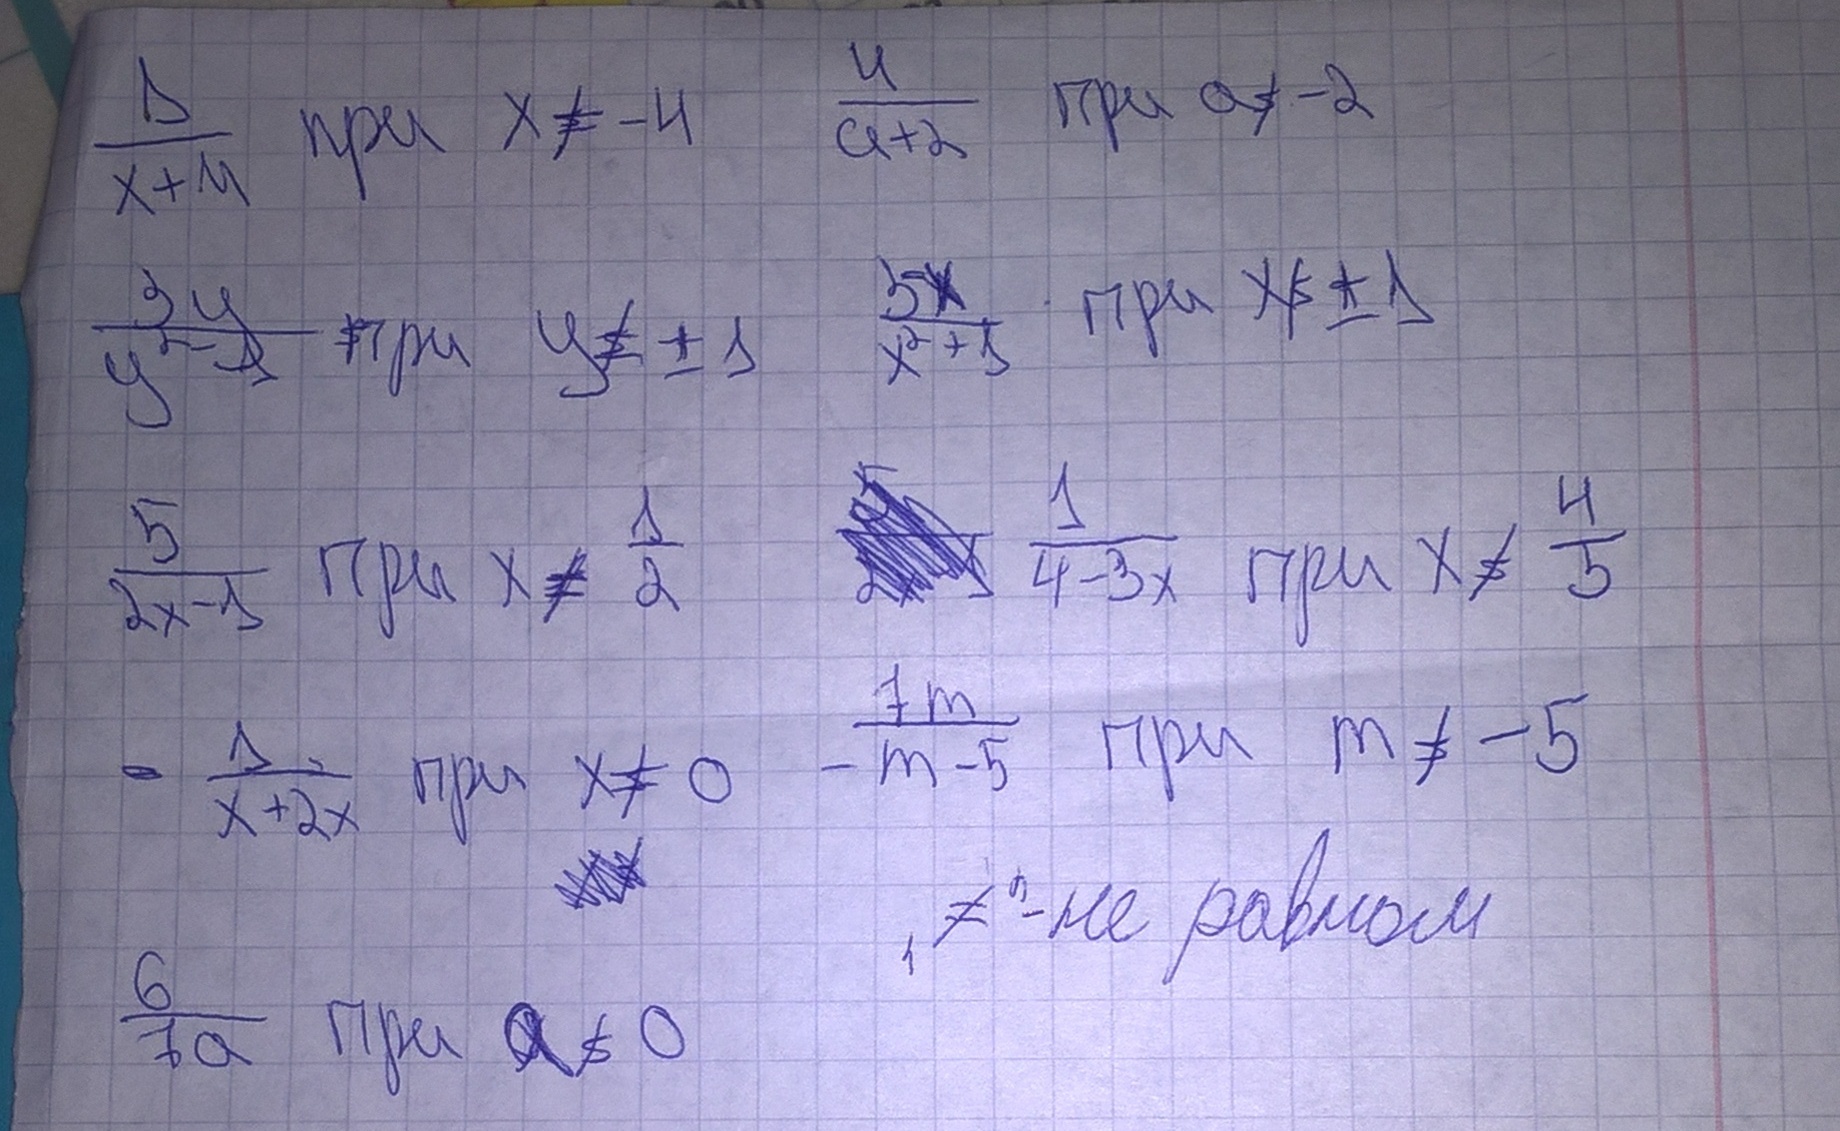 1/(x+4) при x ≠ -4    4/(a+2) при a ≠ -2
3y/(y²-1) при y ≠ ±1    5x/(x²+1) при x ≠ ±1
5/(2x-1) при x ≠ 1/2    1/(4-3x) при x ≠ 4/5
- 1/(x+2x) при x ≠ 0    - 7m/(m-5) при m ≠ -5
„≠" - не равном
6/(7a) при a ≠ 0